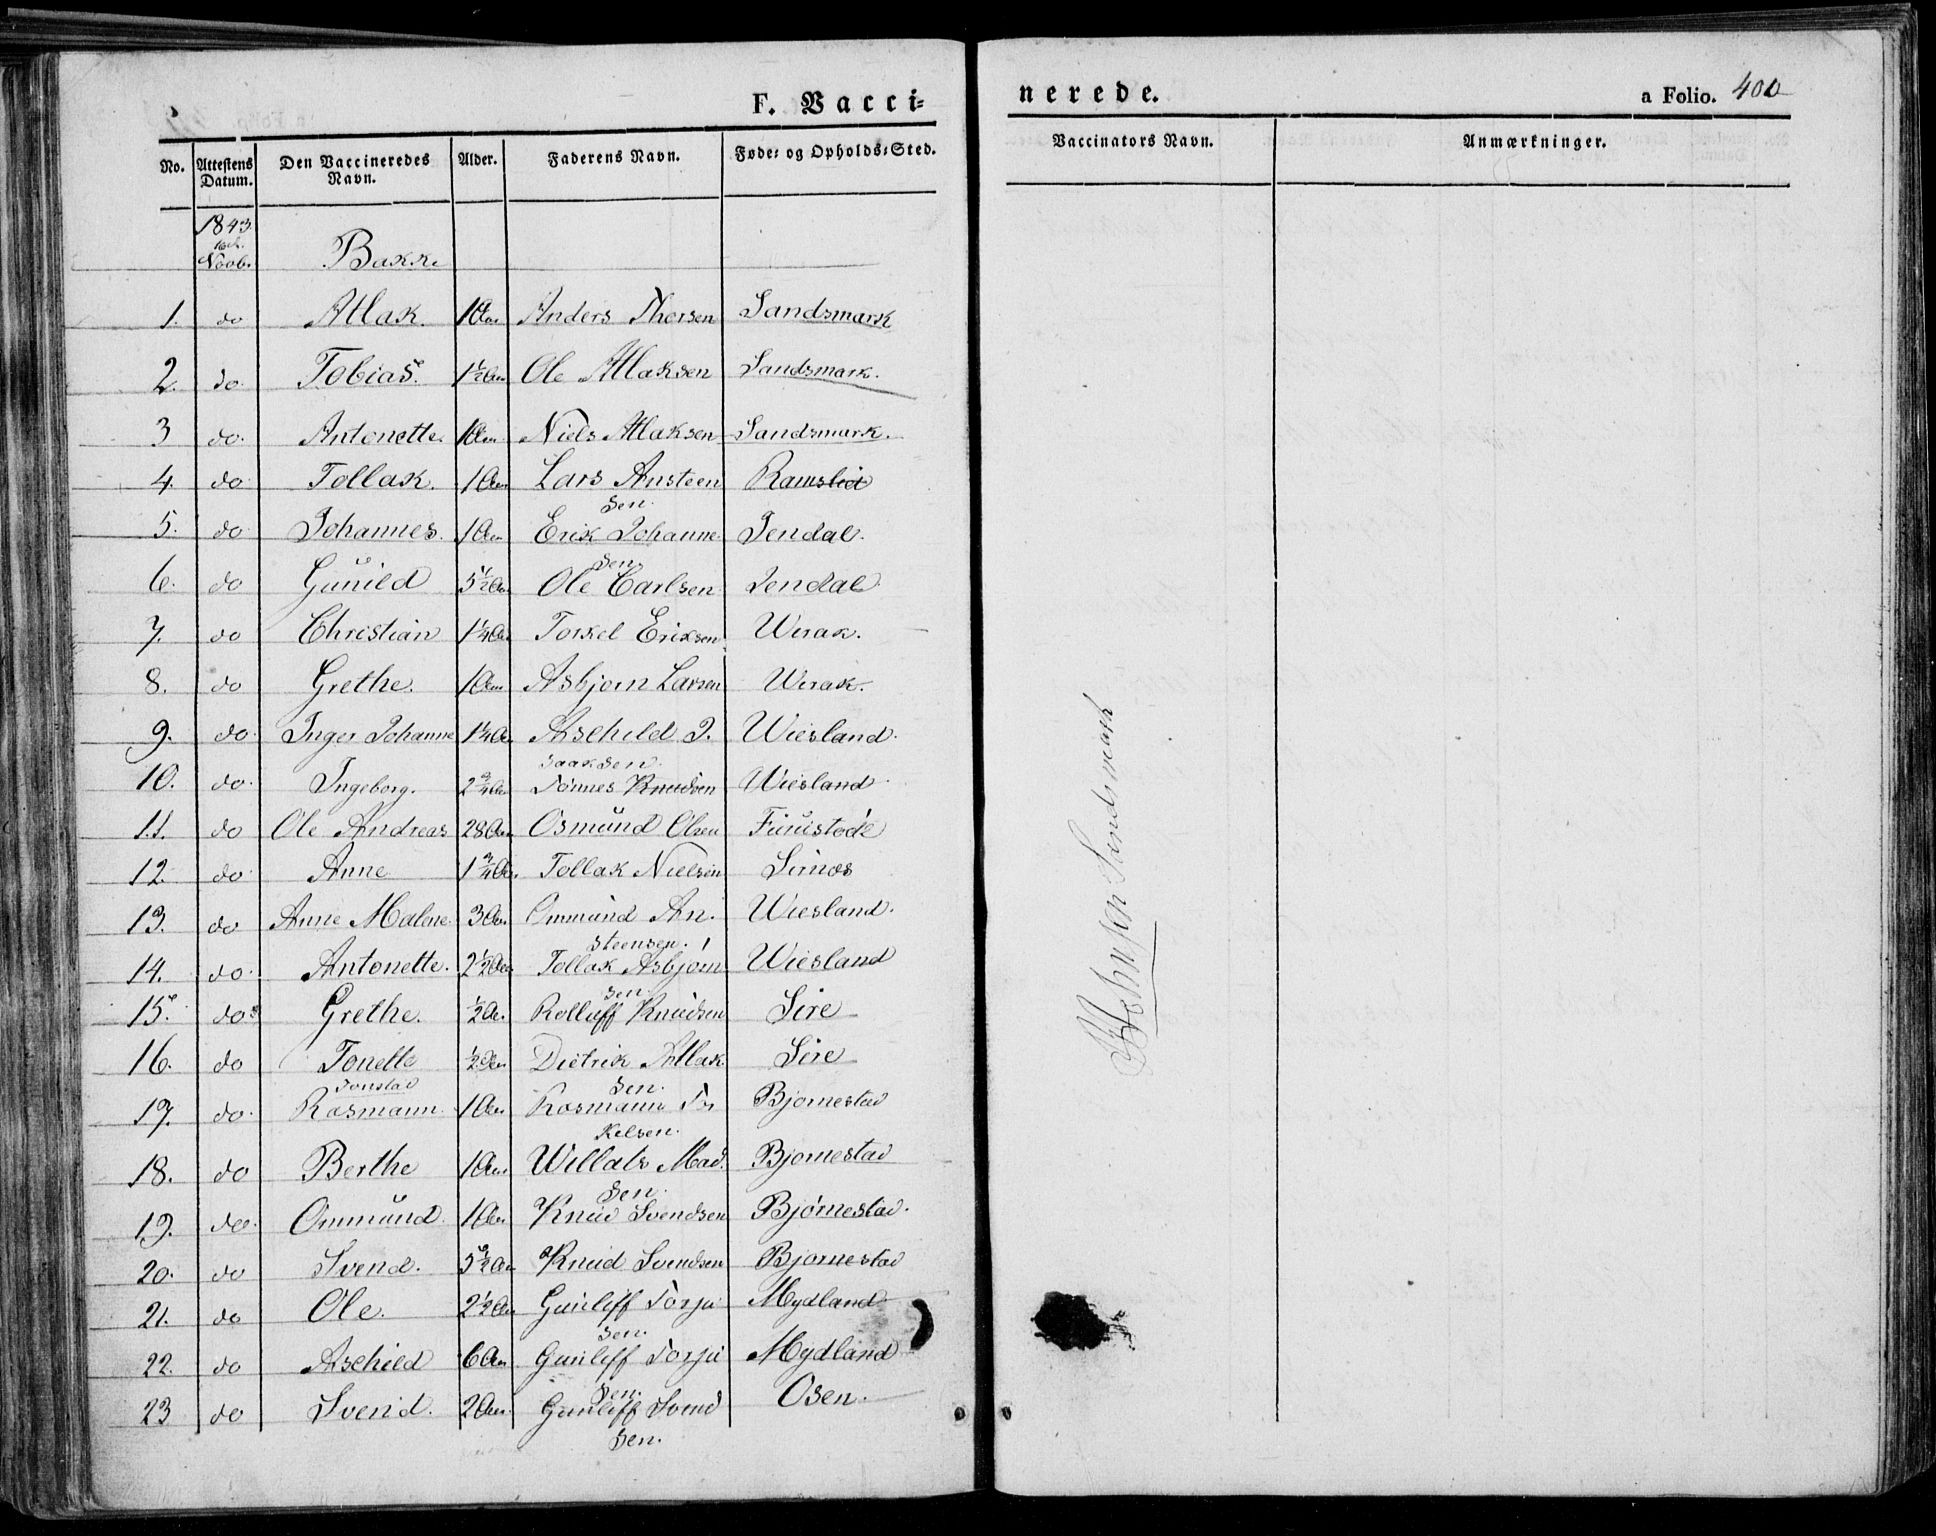 F. Vaccinerede.
a Folio. 400
No. | Attestens Datum. | Den Vaccineredes Navn. | Alder. | Faderens Navn. | Føde- og Opholds-Sted. | Vaccinators Navn. | Anmærkninger.
1843 16de Novb. Bakke
1. do Atlak. 1 Aar Anders Thorsen Sandsmark
2. do Tobias. 1½ Aar Ole Atlaksen Sandsmark.
3 do. Antonette. 1 Aar Niels Atlaksen Sandsmark.
4. do Tollak. 1 Aar Lars Ansteensen. Ramslid
5. do Johannes. 1 Aar Erik Johannesen Jendal.
6. do Gunild 5½ Aar Ole Carlsen Jendal
7. do Christian 1¼ Aar Torkel Eriksen Wirak.
8. do Grethe. 1 Aar Asbjørn Larsen Wirak.
9. do. Inger Johanne 1¼ Aar Aschild J. Isaaksen. Wiesland.
10. do. Ingeborg. 2¾ Aar Tønnes Knudsen Wiesland
11. do Ole Andreas 28 Aar Osmund Olsen Furustøde
12. do Anne 1¾ Aar Tollak Nielsen Sirnæs
13. do Anne Malene 3 Aar Ommund Ansteensen. Wiesland.
14. do. Antonette. 2½ Aar Tollak Asbjørnsen Wiesland
15. do Grethe. ½ Aar Rolluff Knudsen Sire
16. do Tonette ½ Aar Dietrik Atlaksen. Sire
17. do. Tonstad Rasmann. 1 Aar Rosmann Torkelsen. Bjørnestad
18. do Berthe 1 Aar Willats Madsen. Bjørnestad
19. do. Ommund 1 Aar Knud Svendsen Bjørnestad.
20. do Svend. 5½ Aar Knud Svendsen Bjørnestad
21. do Ole. 2½ Aar Gunleff Torjusen. Mydland
22. do Aschild 6 Aar Gunleff Torjusen. Mydland
23 do Svend. 2 Aar. Gunleff Svendsen. Osen.
Sandsmark